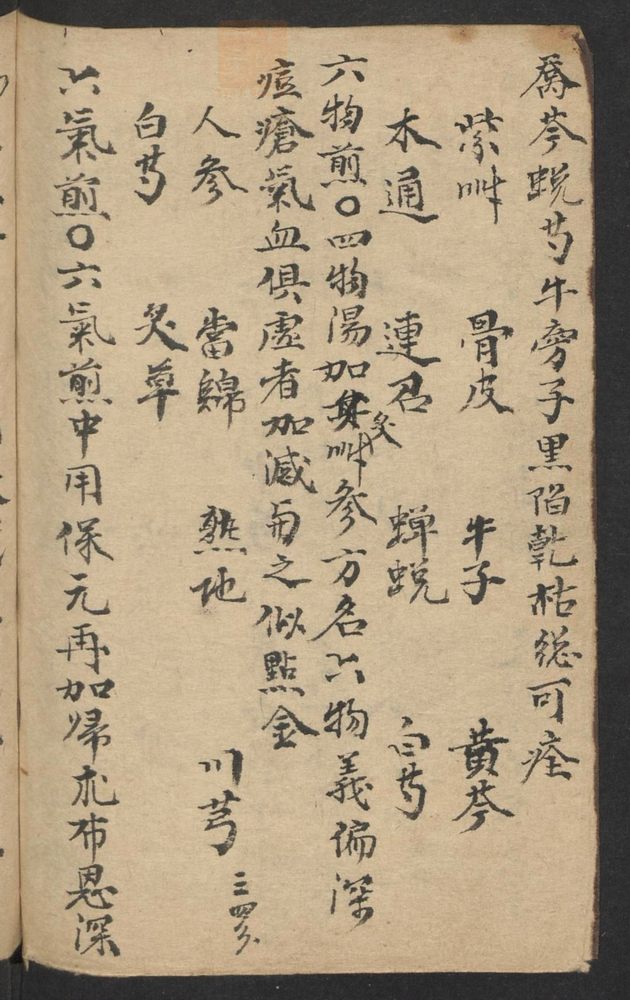 芩蛻芍牛旁子黑陷乾枯總可痊
紫艸 骨皮 牛子 黃芩
木通 連召 蟬蛻 白芍
六物煎〇四物湯加炙艸參方名六物義偏深
痘瘡氣血俱虛者加減用之似點金
人參 當歸 熟地 川芎 三四分
白芍 炙草
六氣煎〇六氣煎中用保元再加歸朮布恩深